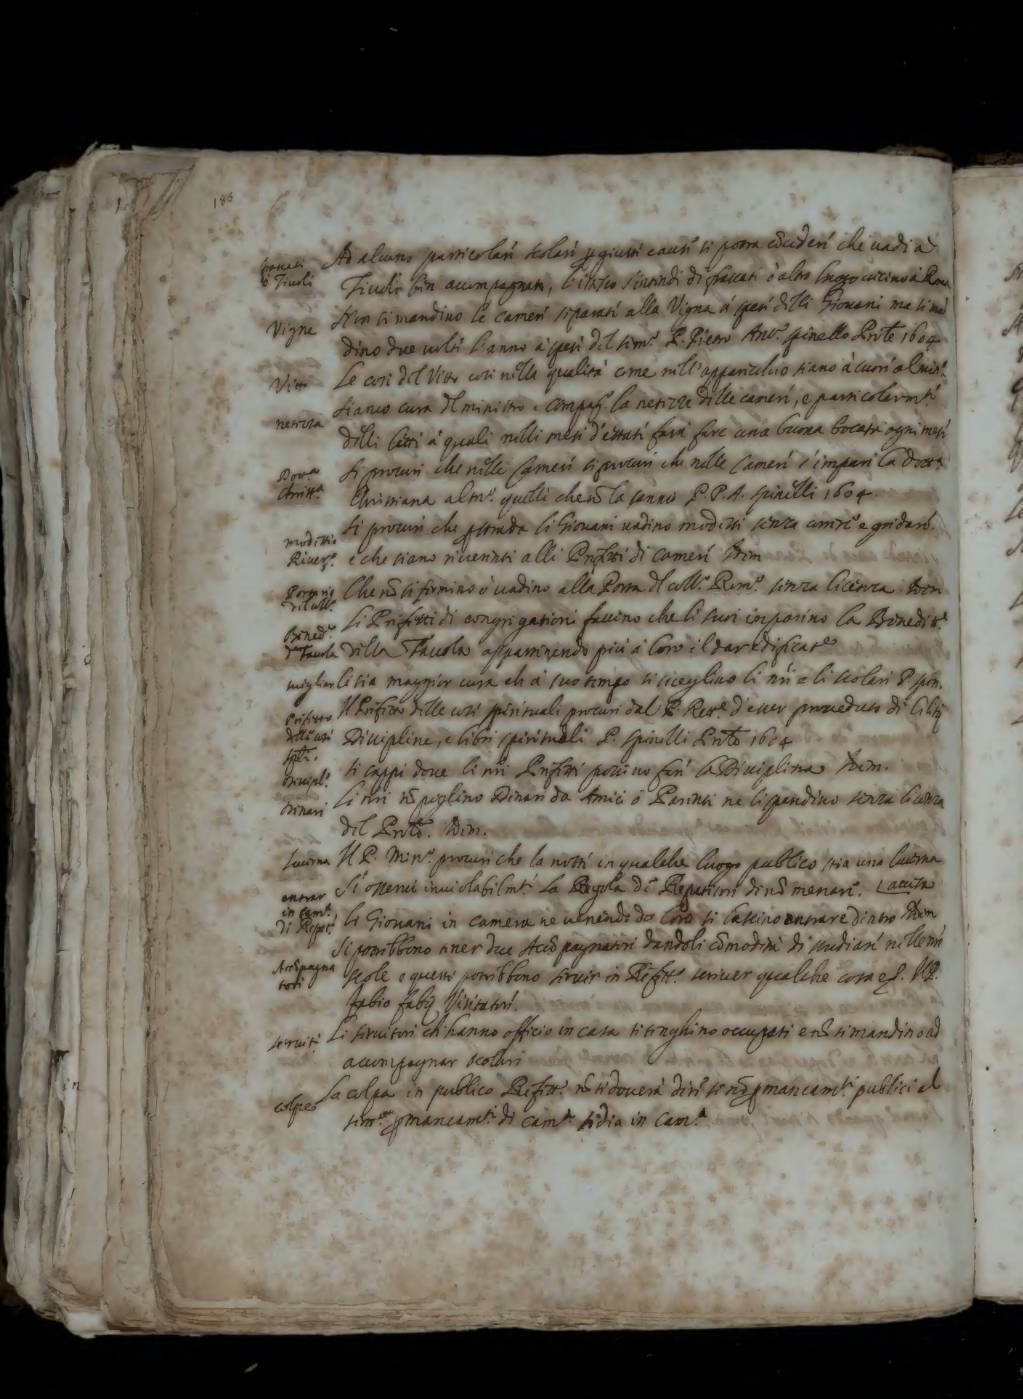 185
frascati
o Tiuoli
Ad alcuno particolari scolari p giuste cause si possa cõcederi che uadi à
Tiuoli ben acompagnati, l'istesso s'intendi di frascati ò altro luogo uicino à Roma
Vigne
Non si mandino le cameri separati alla Vigna à spesi delli Giouani ma si mã
dino due uolti l'anno à spesi del sem.º P. Pietro Ant.º Spinello Prõle 1604
Vitto
Le cosi del Vitto cosi nella qualità come nell'apparicchio siano à cuori al min.º
netezza
Hanno cura del ministro e compag.º la netizze delle cameri, e particolarm.ti
delli letti à quali nelli mesi d'estati farà fare una buona bocata ogni mesi
Dot.na
Christ.na
Si procuri che nelle Cameri si procuri che nelle Cameri s'impari la Dott.a
Christiana alm.º quelli che nõ la sanno P. P. A. Spinelli 1604
modestia
Riuer.ª
Si procuri che p strada li Giouani uadino modesti senza e gridari.
e che siano riuerenti alli Prefetti di cameri Idem
Che nõ si fermino ò uadino alla Porta del coll.º Rom.º senza licenza Idem
Bened.e
d Tauola
Li Prefetti di congrigationi faccino che li suoi imparino la Benedit.e
della Tauola appartenendo piu à loro il dar edificat.e
miglior
li sia maggior cura ch à suo tempo si sceglino li nri e li scolari P. Spin.
Prefetto
delli cosi
spũli.
Il Prefetto delle cosi spirituali procuri dal P. Ret.e d'esser proueduto di cilitij
Discipline, e libri spirituali P. Spinelli Prõle 1604
discipl.ª
si cappi doue li nri Prefetti possino fari la Disciplina Idem.
Dinari
Li nri nõ peglino Dinari da Amici ò Parenti ne li spendino senza licenza
del Prõle. Idem.
Lucerna
Il P. Min.º procuri che la notti in qualche luogo publico stia una lucerna
entrar
in cam.e
di Repet.i
Si osserui inuiolabilm.ti la Regola di Repetitori di nõ menari.
li Giouani in camera ne uenendo da loro si lascino entrare dintro Idem
Acõpagna
tori
Si potribbono auer due Acõpagnatori dandoli cõmodità di studiari nelle nri
scole e questi potribbono seruir in Refitt.º scriuer qualche cosa &. P.
fabio fabij Visitatori.
seruiti.
Li seruitori ch hanno officio in casa si tenghino occupati e nõ si mandino ad
acompagnar scolari
colpe
La colpa in publico Refitt.º nõ si douerà diri se nõ p mancam.ti publici al
sim.e p mancam.ti di cam.e si dia in cam.e